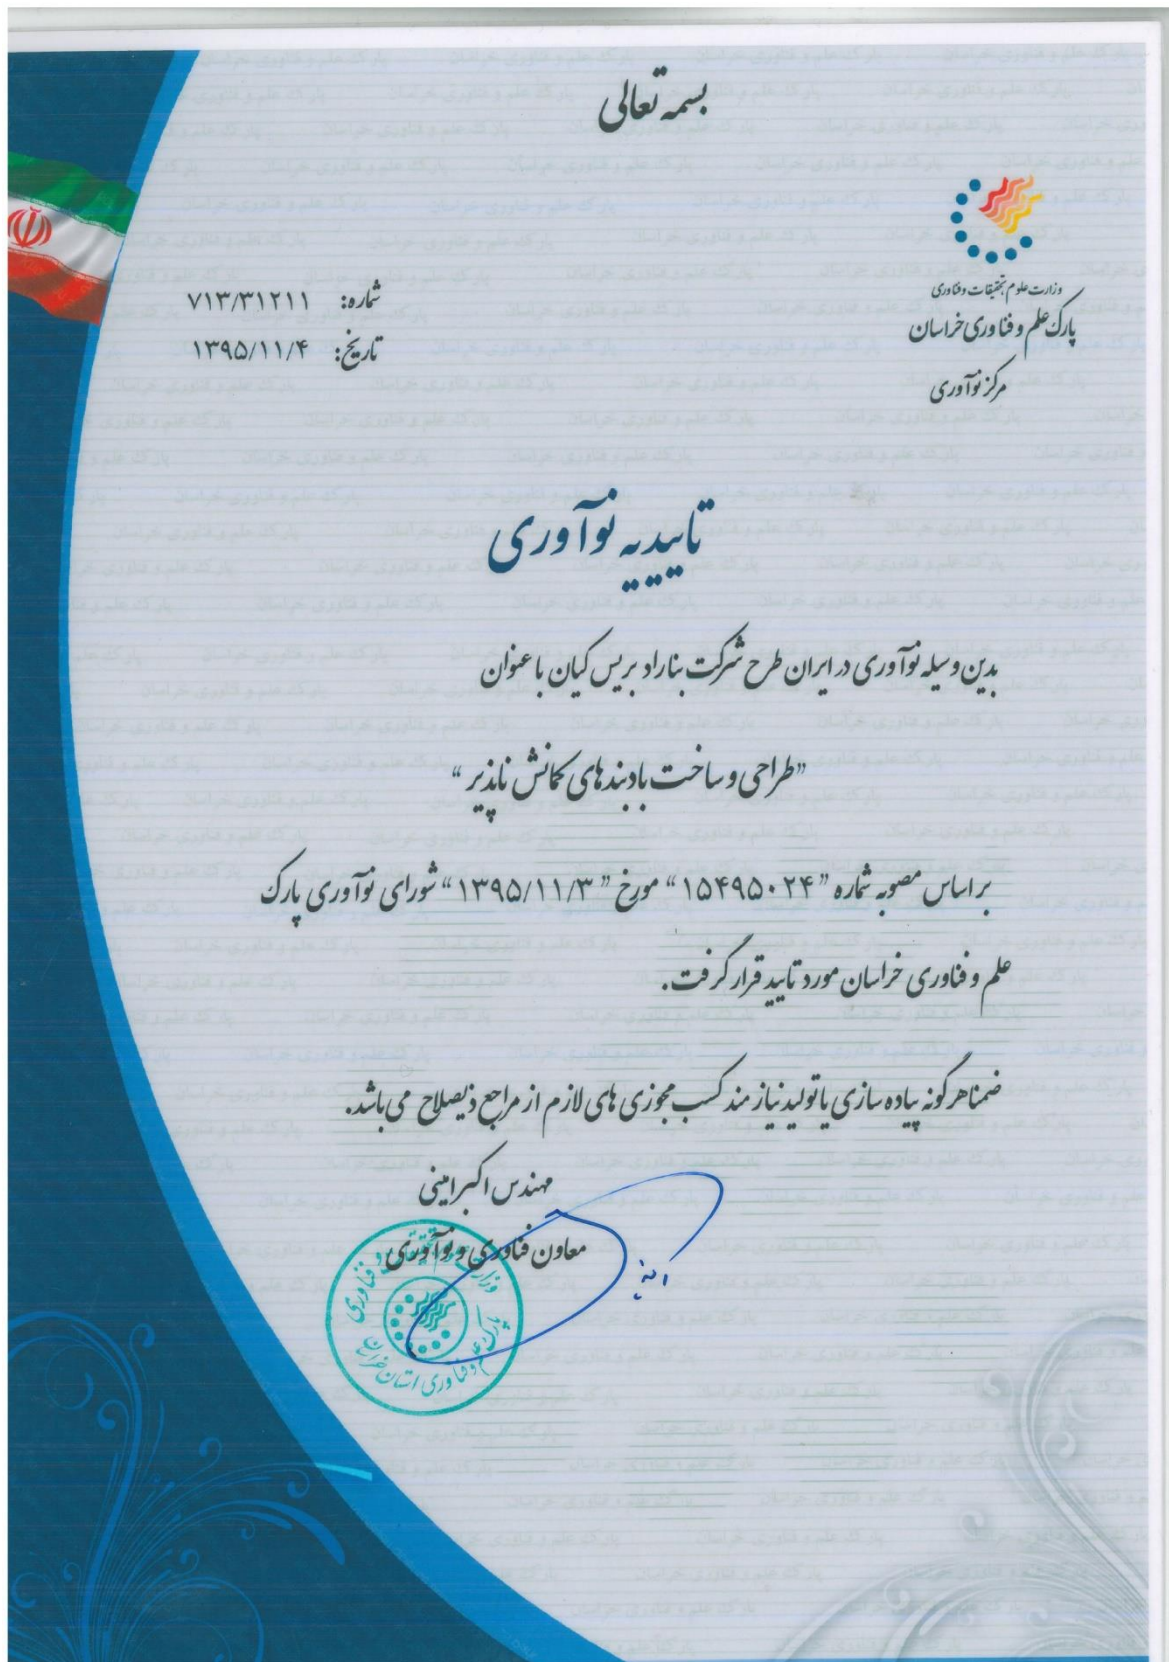 بسمه تعالی
وزارت علوم تحقیقات و فناوری
پارک علم و فناوری خراسان
مرکز نوآوری
شماره: ۷۱۳/۳۱۲۱۱
تاریخ: ۱۳۹۵/۱۱/۴
تاییدیه نوآوری
بدین وسیله نوآوری در ایران طرح شرکت بناراد بریس کیان با عنوان
"طراحی و ساخت بادبندهای کمانش ناپذیر"
بر اساس مصوبه شماره "۱۵۴۹۵۰۲۴" مورخ "۱۳۹۵/۱۱/۳" شورای نوآوری پارک
علم و فناوری خراسان مورد تایید قرار گرفت.
ضمنا هرگونه پیاده سازی یا تولید نیازمند کسب مجوزی های لازم از مراجع ذیصلاح می باشد.
مهندس اکبر امینی
معاون فناوری و نوآوری
وزارت علوم تحقیقات و فناوری
پارک علم و فناوری استان خراسان